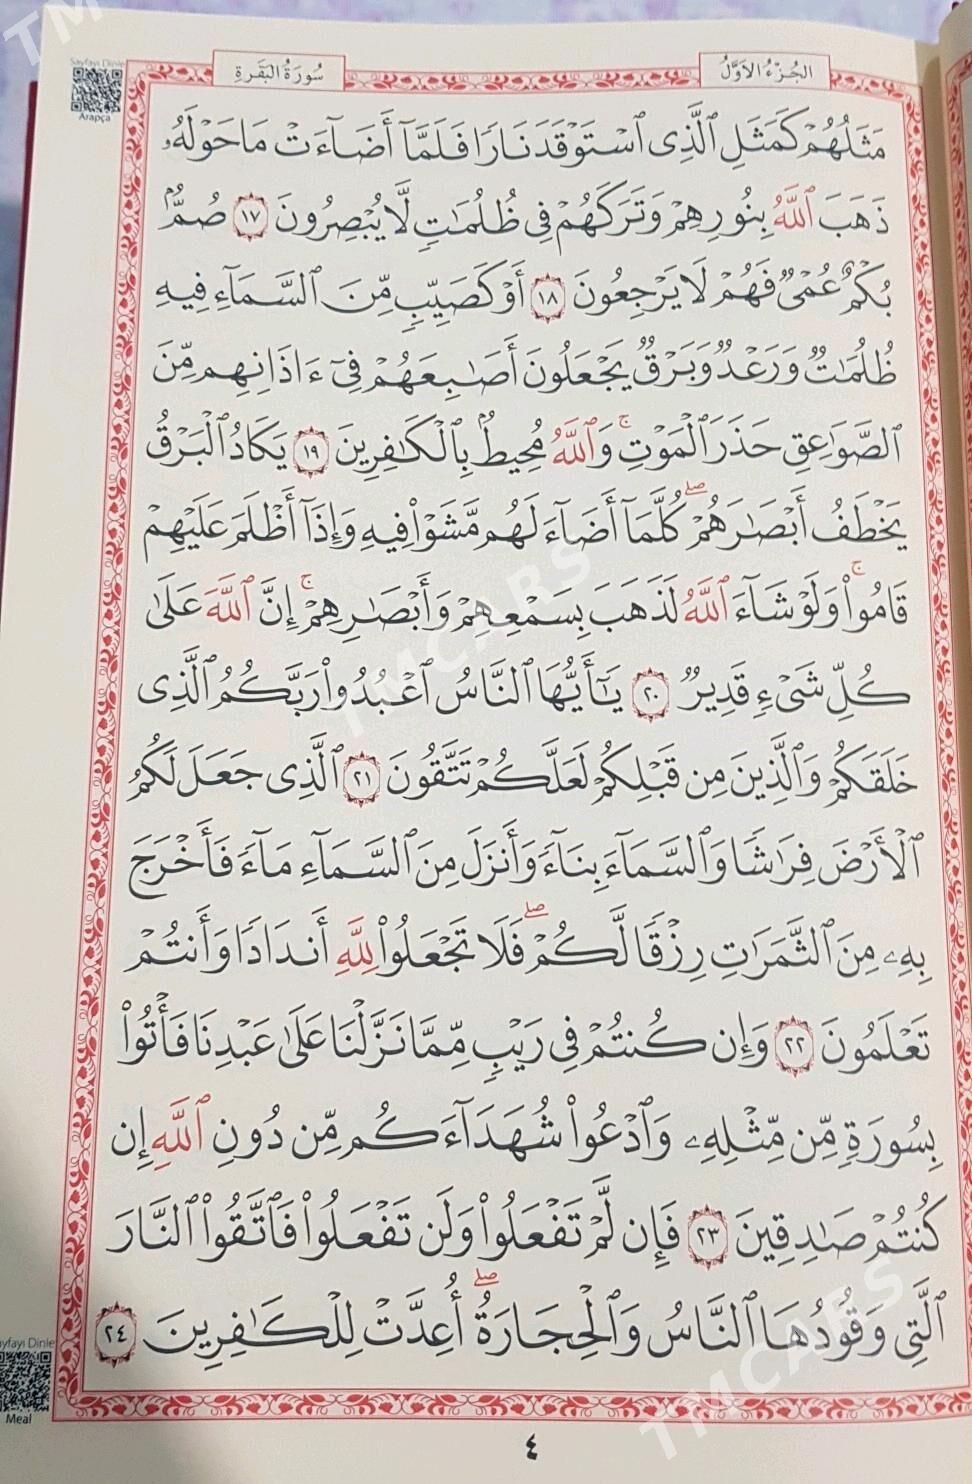 TM
Sayfayı Dinle
Arapça
سُورَةُ الْبَقَرَةِ
الجُزْءُ الاَوَّلُ
مَثَلُهُمْ كَمَثَلِ ٱلَّذِى ٱسْتَوْقَدَ نَارًا فَلَمَّآ أَضَآءَتْ مَا حَوْلَهُۥ
ذَهَبَ ٱللَّهُ بِنُورِهِمْ وَتَرَكَهُمْ فِى ظُلُمَٰتٍ لَّا يُبْصِرُونَ ١٧ صُمٌّۢ
بُكْمٌ عُمْىٌ فَهُمْ لَا يَرْجِعُونَ ١٨ أَوْ كَصَيِّبٍ مِّنَ ٱلسَّمَآءِ فِيهِ
ظُلُمَٰتٌ وَرَعْدٌ وَبَرْقٌ يَجْعَلُونَ أَصَٰبِعَهُمْ فِىٓ ءَاذَانِهِم مِّنَ
ٱلصَّوَٰعِقِ حَذَرَ ٱلْمَوْتِ ۚ وَٱللَّهُ مُحِيطٌۢ بِٱلْكَٰفِرِينَ ١٩ يَكَادُ ٱلْبَرْقُ
يَخْطَفُ أَبْصَٰرَهُمْ ۖ كُلَّمَآ أَضَآءَ لَهُم مَّشَوْا۟ فِيهِ وَإِذَآ أَظْلَمَ عَلَيْهِمْ
قَامُوا۟ ۚ وَلَوْ شَآءَ ٱللَّهُ لَذَهَبَ بِسَمْعِهِمْ وَأَبْصَٰرِهِمْ ۚ إِنَّ ٱللَّهَ عَلَىٰ
كُلِّ شَىْءٍ قَدِيرٌ ٢٠ يَٰٓأَيُّهَا ٱلنَّاسُ ٱعْبُدُوا۟ رَبَّكُمُ ٱلَّذِى
خَلَقَكُمْ وَٱلَّذِينَ مِن قَبْلِكُمْ لَعَلَّكُمْ تَتَّقُونَ ٢١ ٱلَّذِى جَعَلَ لَكُمُ
ٱلْأَرْضَ فِرَٰشًا وَٱلسَّمَآءَ بِنَآءً وَأَنزَلَ مِنَ ٱلسَّمَآءِ مَآءً فَأَخْرَجَ
بِهِۦ مِنَ ٱلثَّمَرَٰتِ رِزْقًا لَّكُمْ ۖ فَلَا تَجْعَلُوا۟ لِلَّهِ أَندَادًا وَأَنتُمْ
تَعْلَمُونَ ٢٢ وَإِن كُنتُمْ فِى رَيْبٍ مِّمَّا نَزَّلْنَا عَلَىٰ عَبْدِنَا فَأْتُوا۟
بِسُورَةٍ مِّن مِّثْلِهِۦ وَٱدْعُوا۟ شُهَدَآءَكُم مِّن دُونِ ٱللَّهِ إِن
كُنتُمْ صَٰدِقِينَ ٢٣ فَإِن لَّمْ تَفْعَلُوا۟ وَلَن تَفْعَلُوا۟ فَٱتَّقُوا۟ ٱلنَّارَ
ٱلَّتِى وَقُودُهَا ٱلنَّاسُ وَٱلْحِجَارَةُ ۖ أُعِدَّتْ لِلْكَٰفِرِينَ ٢٤
TMCARS
ayfayı Dinle
Meal
TMCARS
٤